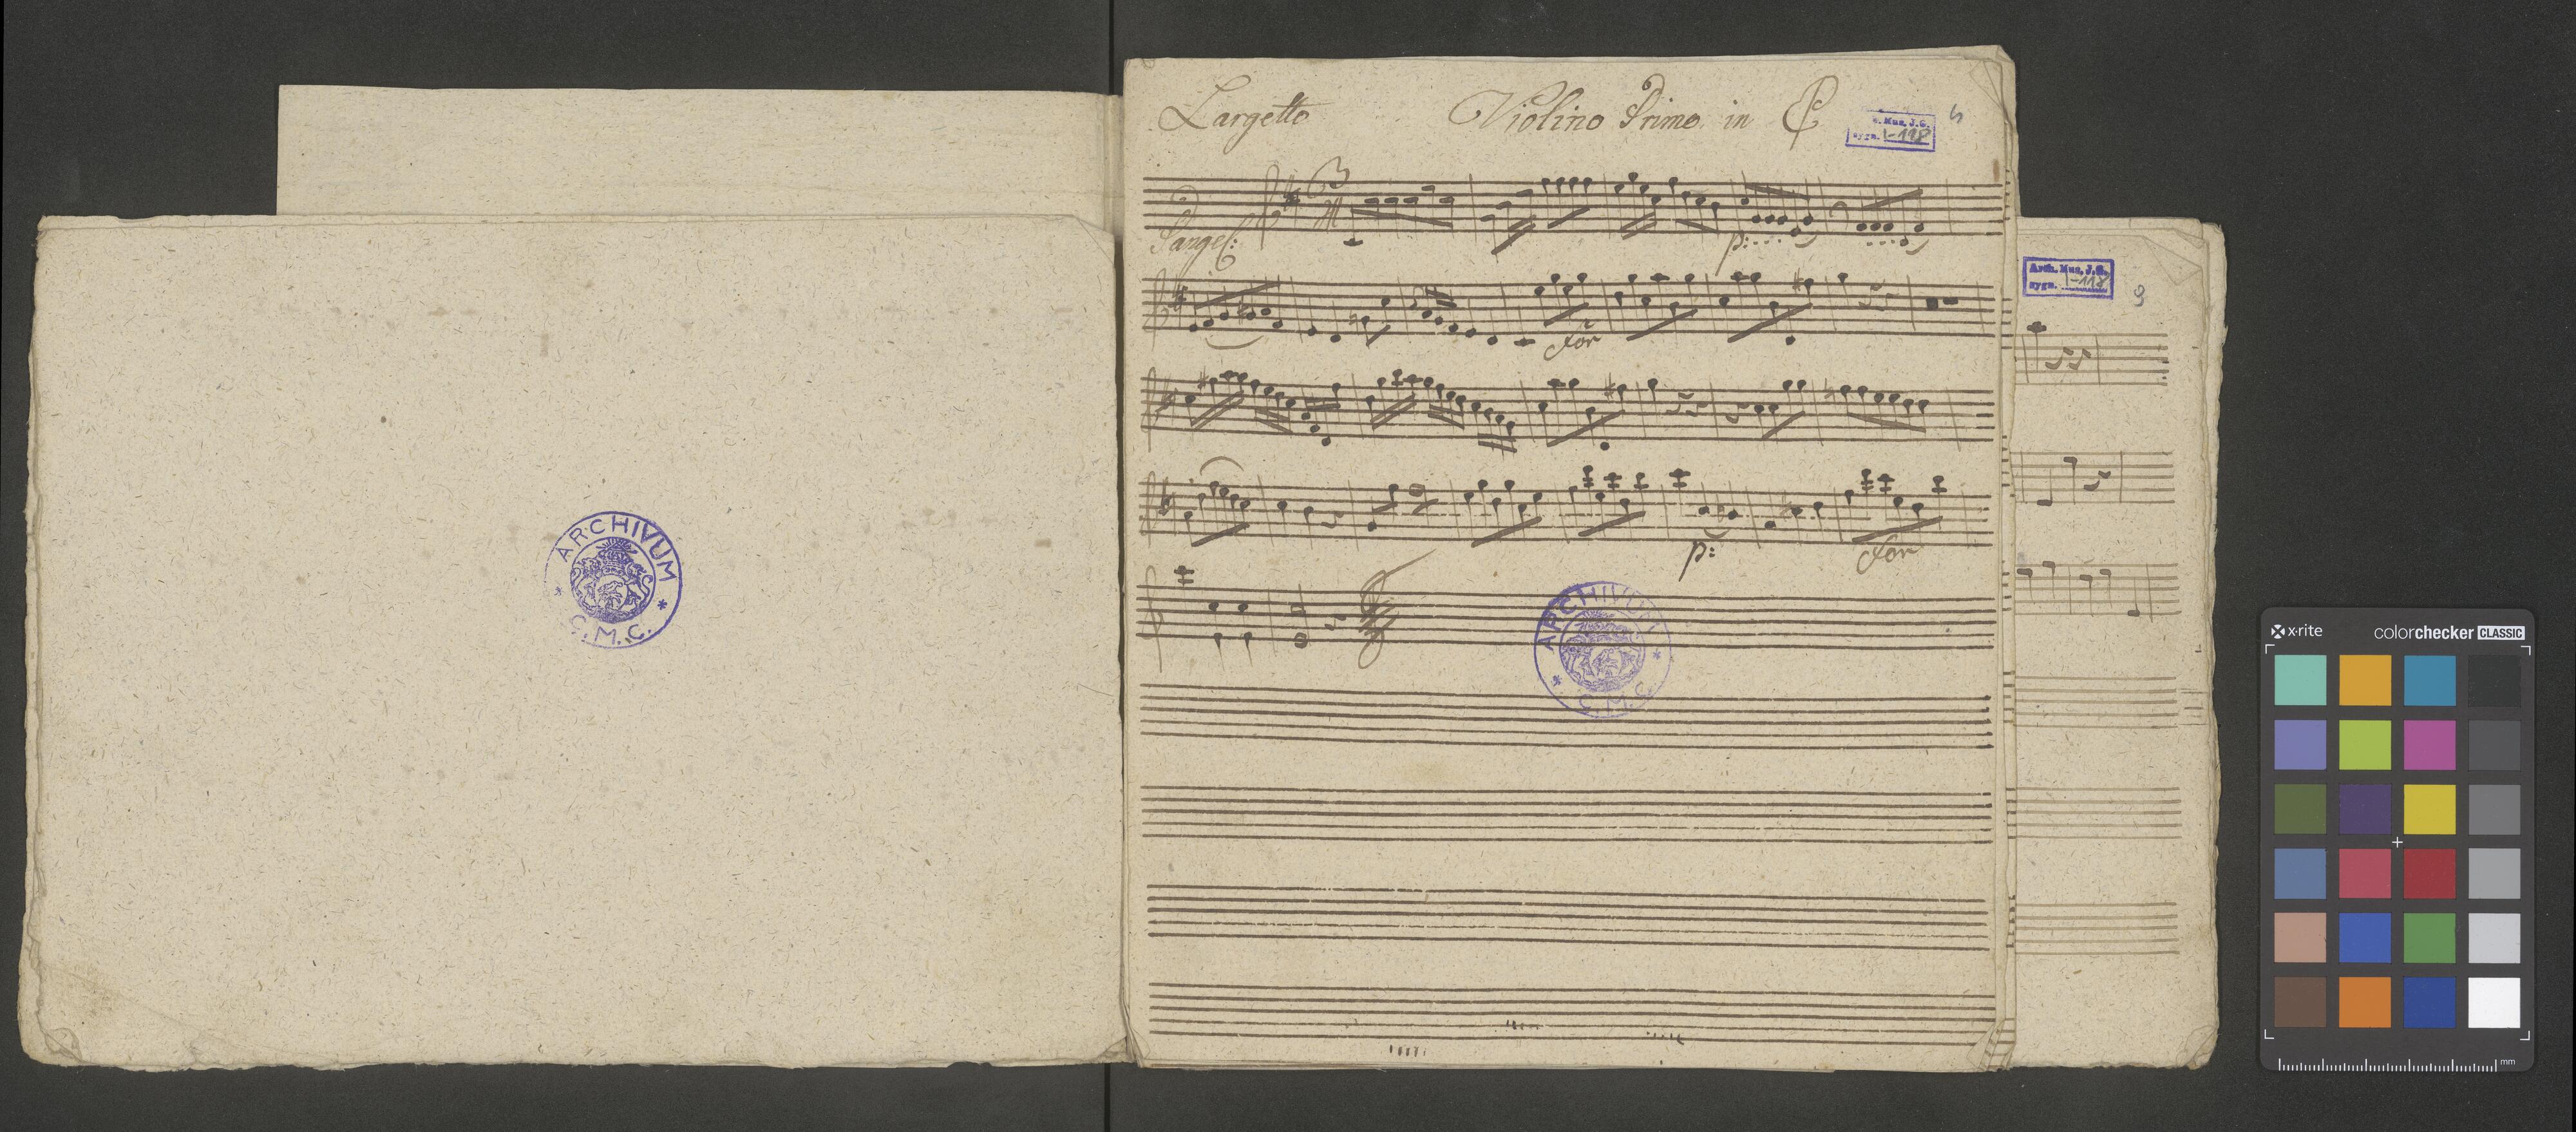 ARCHIVUM
* C.M.C. *
Largetto Violino Primo in C
c. Mus. J.G.
sygn. I-118
Largel:
p:
for
p:
for
ARCHIVUM
* C.M.C. *
Arch. Mus. J.G.
sygn. I-118
9
x-rite
colorchecker CLASSIC
mm